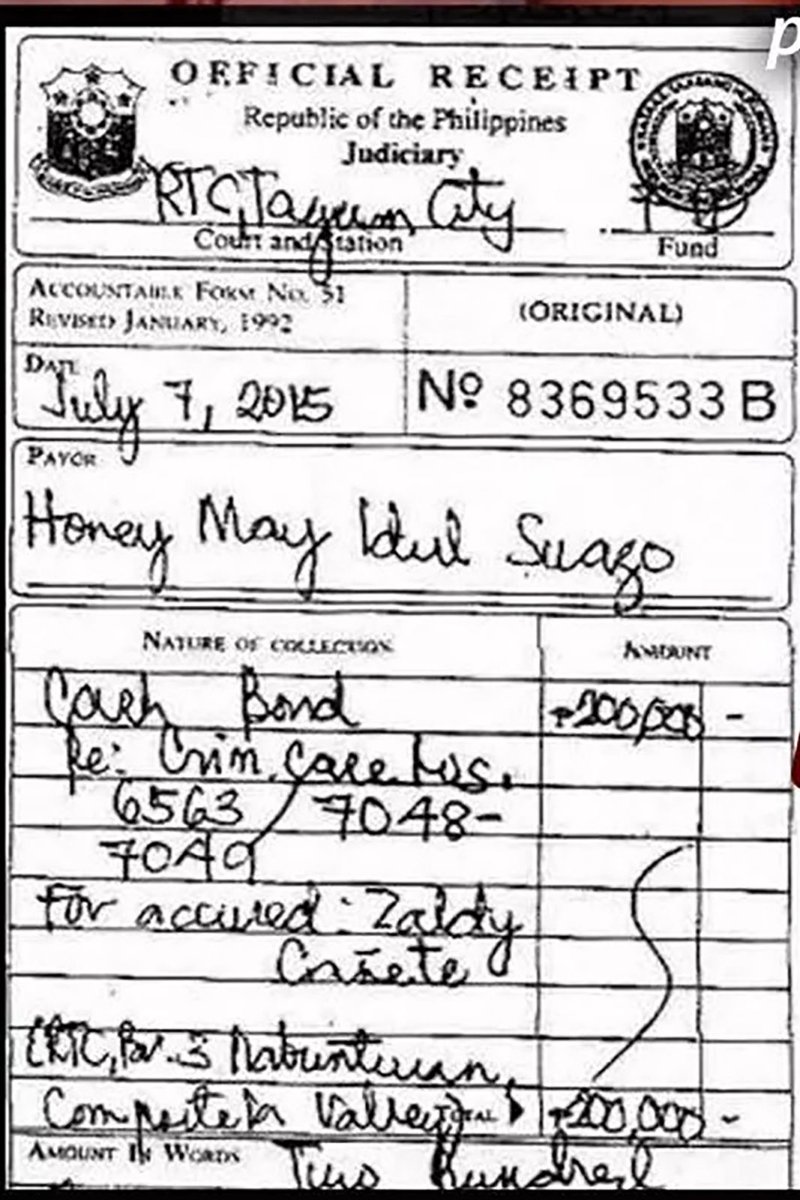 p
OFFICIAL RECEIPT
Republic of the Philippines
Judiciary
RTC, Tagum City
Court and Station
Fund
ACCOUNTABLE FORM NO. 51
REVISED JANUARY, 1992
(ORIGINAL)
DATE
July 7, 2015
Nº 8369533 B
PAYOR
Honey May Idul Suazo
NATURE OF COLLECTION
AMOUNT
Cash Bond ₱200,000 -
Re: Crim. Case Nos.
6563 / 7048-
7049
For accused: Zaldy
Cañete
(RTC, Br. 3 Nabunturan,
Compostela Valley) TOTAL ₱200,000 -
AMOUNT IN WORDS Two Hundred